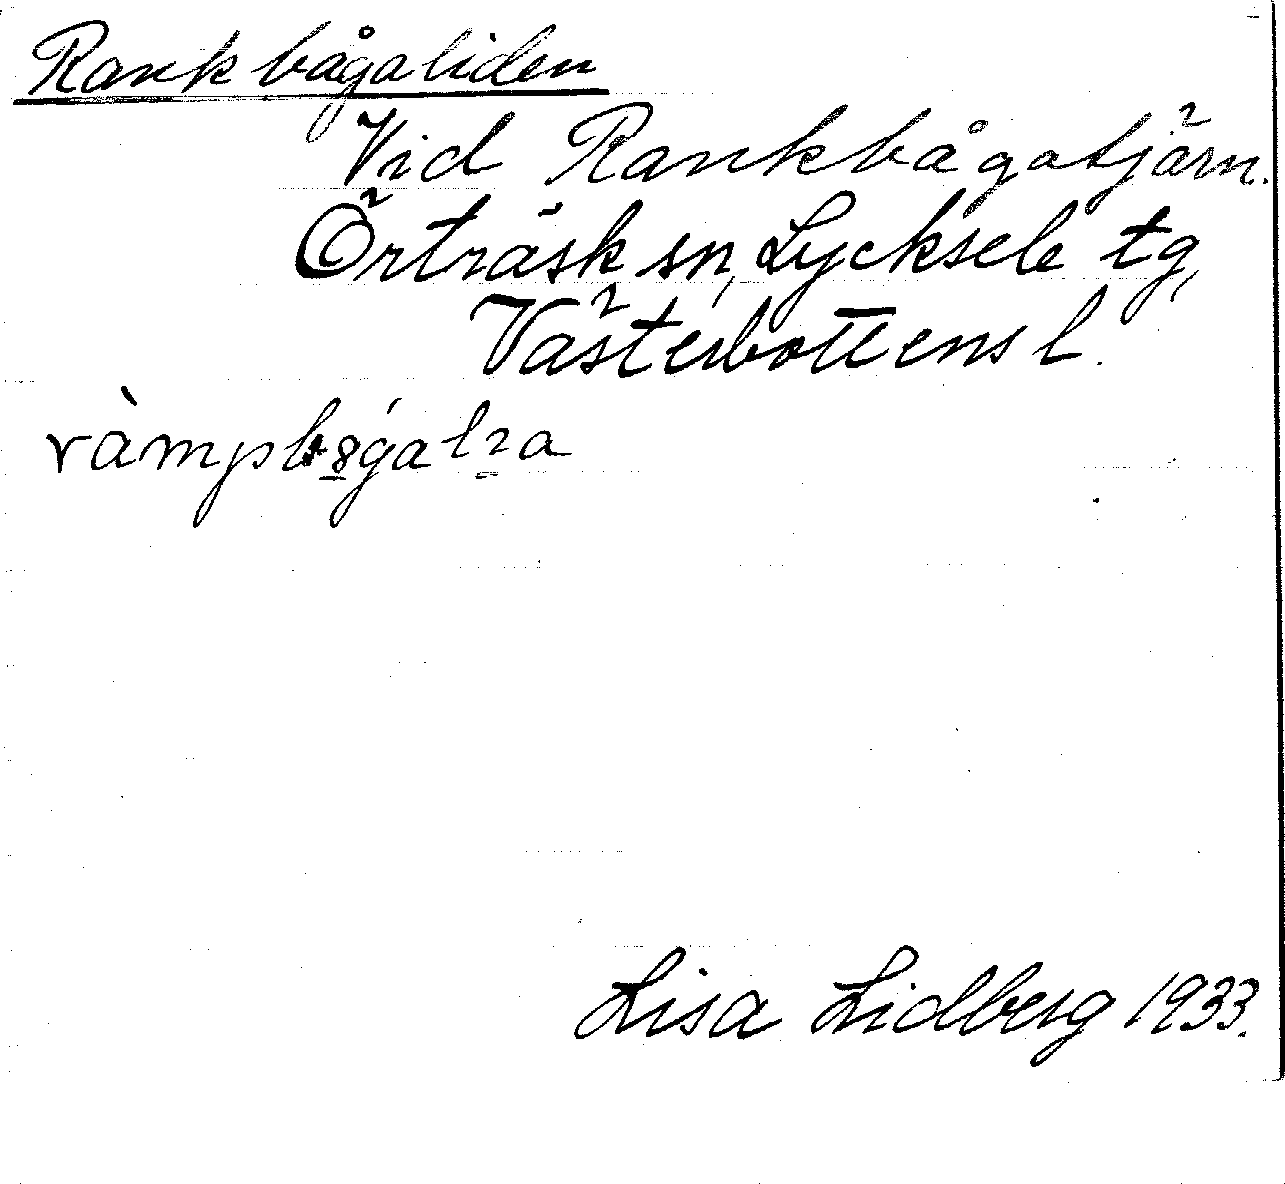 Rankbågaliden
Vid Rankbågatjärn.
Örträsk sn, Lycksele tg,
Västerbottens l.
Lisa Lidberg 1933.